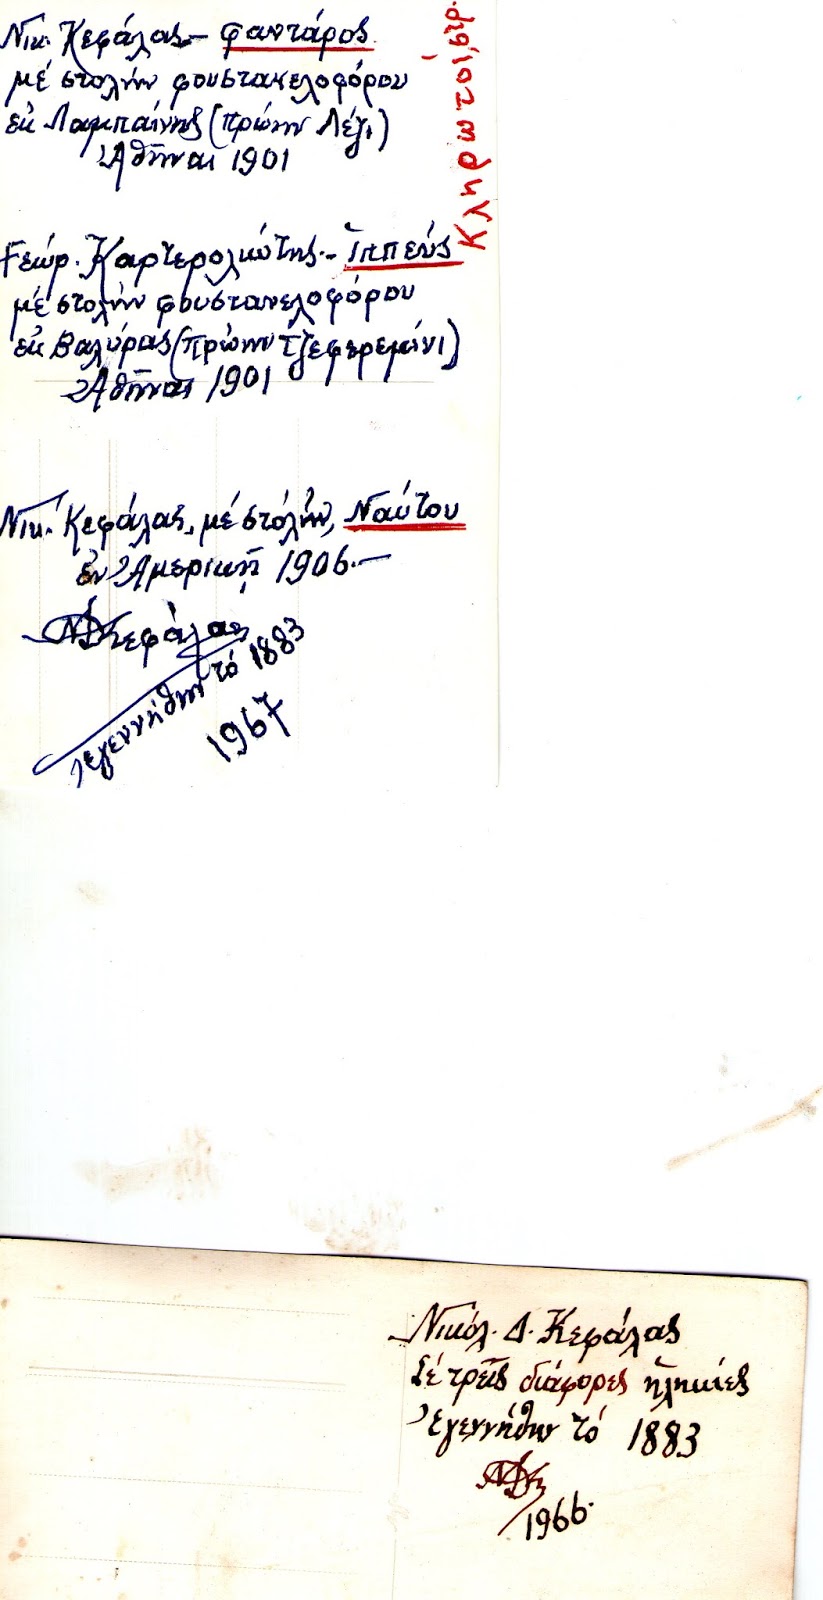 Νικ. Κεφάλας – φαντάρος.
μέ στολήν φουστανελοφόρου
εκ Λαμπαίνης (πρώην Λέζι)
Ἀθῆναι 1901
Γεώρ. Καρτερολιώτης. – Ἱππεύς
μέ στολήν φουστανελοφόρου
εκ Βαλύρας (πρώην Τζεφερεμίνι)
Ἀθῆναι 1901
Νικ. Κεφάλας, μέ στολήν, Ναύτου
ἐν Ἀμερικῇ 1906.–
ΝΔΚεφάλας
ἐγεννήθην τό 1883
1967
Νικόλ. Δ. Κεφάλας
Σέ τρεῖς διάφορες ἡλικίες
Ἐγεννήθην τό 1883
ΝΔΚ
1966.